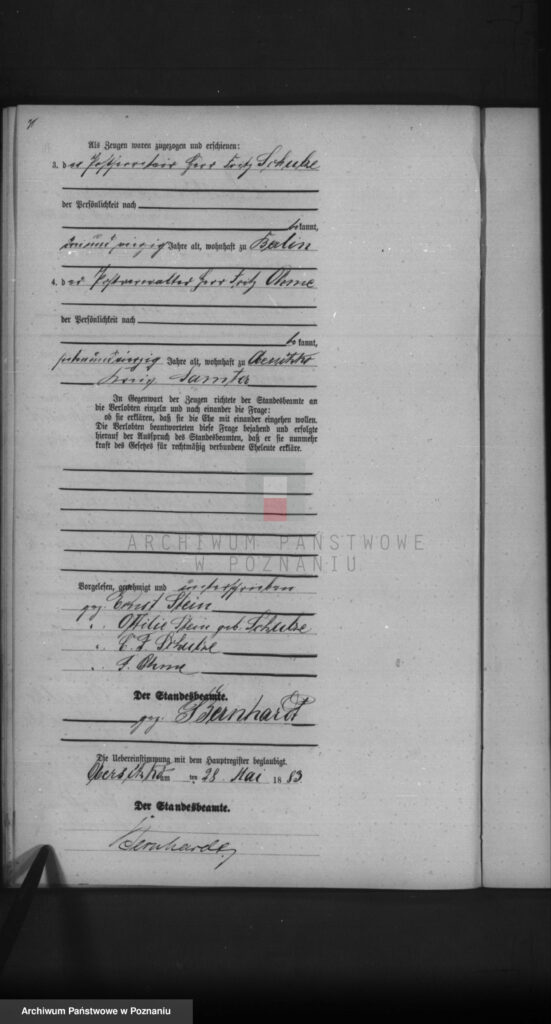 Als Zeugen waren zugezogen und erschienen:
3. der Postsecretair Herr Fritz Schulze
der Persönlichkeit nach
bekannt,
dreiundvierzig Jahre alt, wohnhaft zu Berlin
4. der Postverwalter Herr Fritz Ohme
der Persönlichkeit nach
be kannt,
sechsundvierzig Jahre alt, wohnhaft zu
Kreis Samter
In Gegenwart der Zeugen richtete der Standesbeamte an
die Verlobten einzeln und nach einander die Frage:
ob sie erklären, daß sie die Ehe mit einander eingehen wollen.
Die Verlobten beantworteten diese Frage bejahend und erfolgte
hierauf der Ausspruch des Standesbeamten, daß er sie nunmehr
kraft des Gesetzes für rechtmäßig verbundene Eheleute erkläre.
ARCHIWUM PAŃSTWOWE
W POZNANIU
Vorgelesen, genehmigt und unterschrieben
gez. Ernst Stein
" Ottilie Stein geb. Schulze
" C. F. Schulze
" F. Ohme
Der Standesbeamte.
gez. Bernhardt
Die Uebereinstimmung mit dem Hauptregister beglaubigt.
Obersitzko am ten 28 Mai 1883.
Der Standesbeamte.
Bernhardt
Archiwum Państwowe w Poznaniu